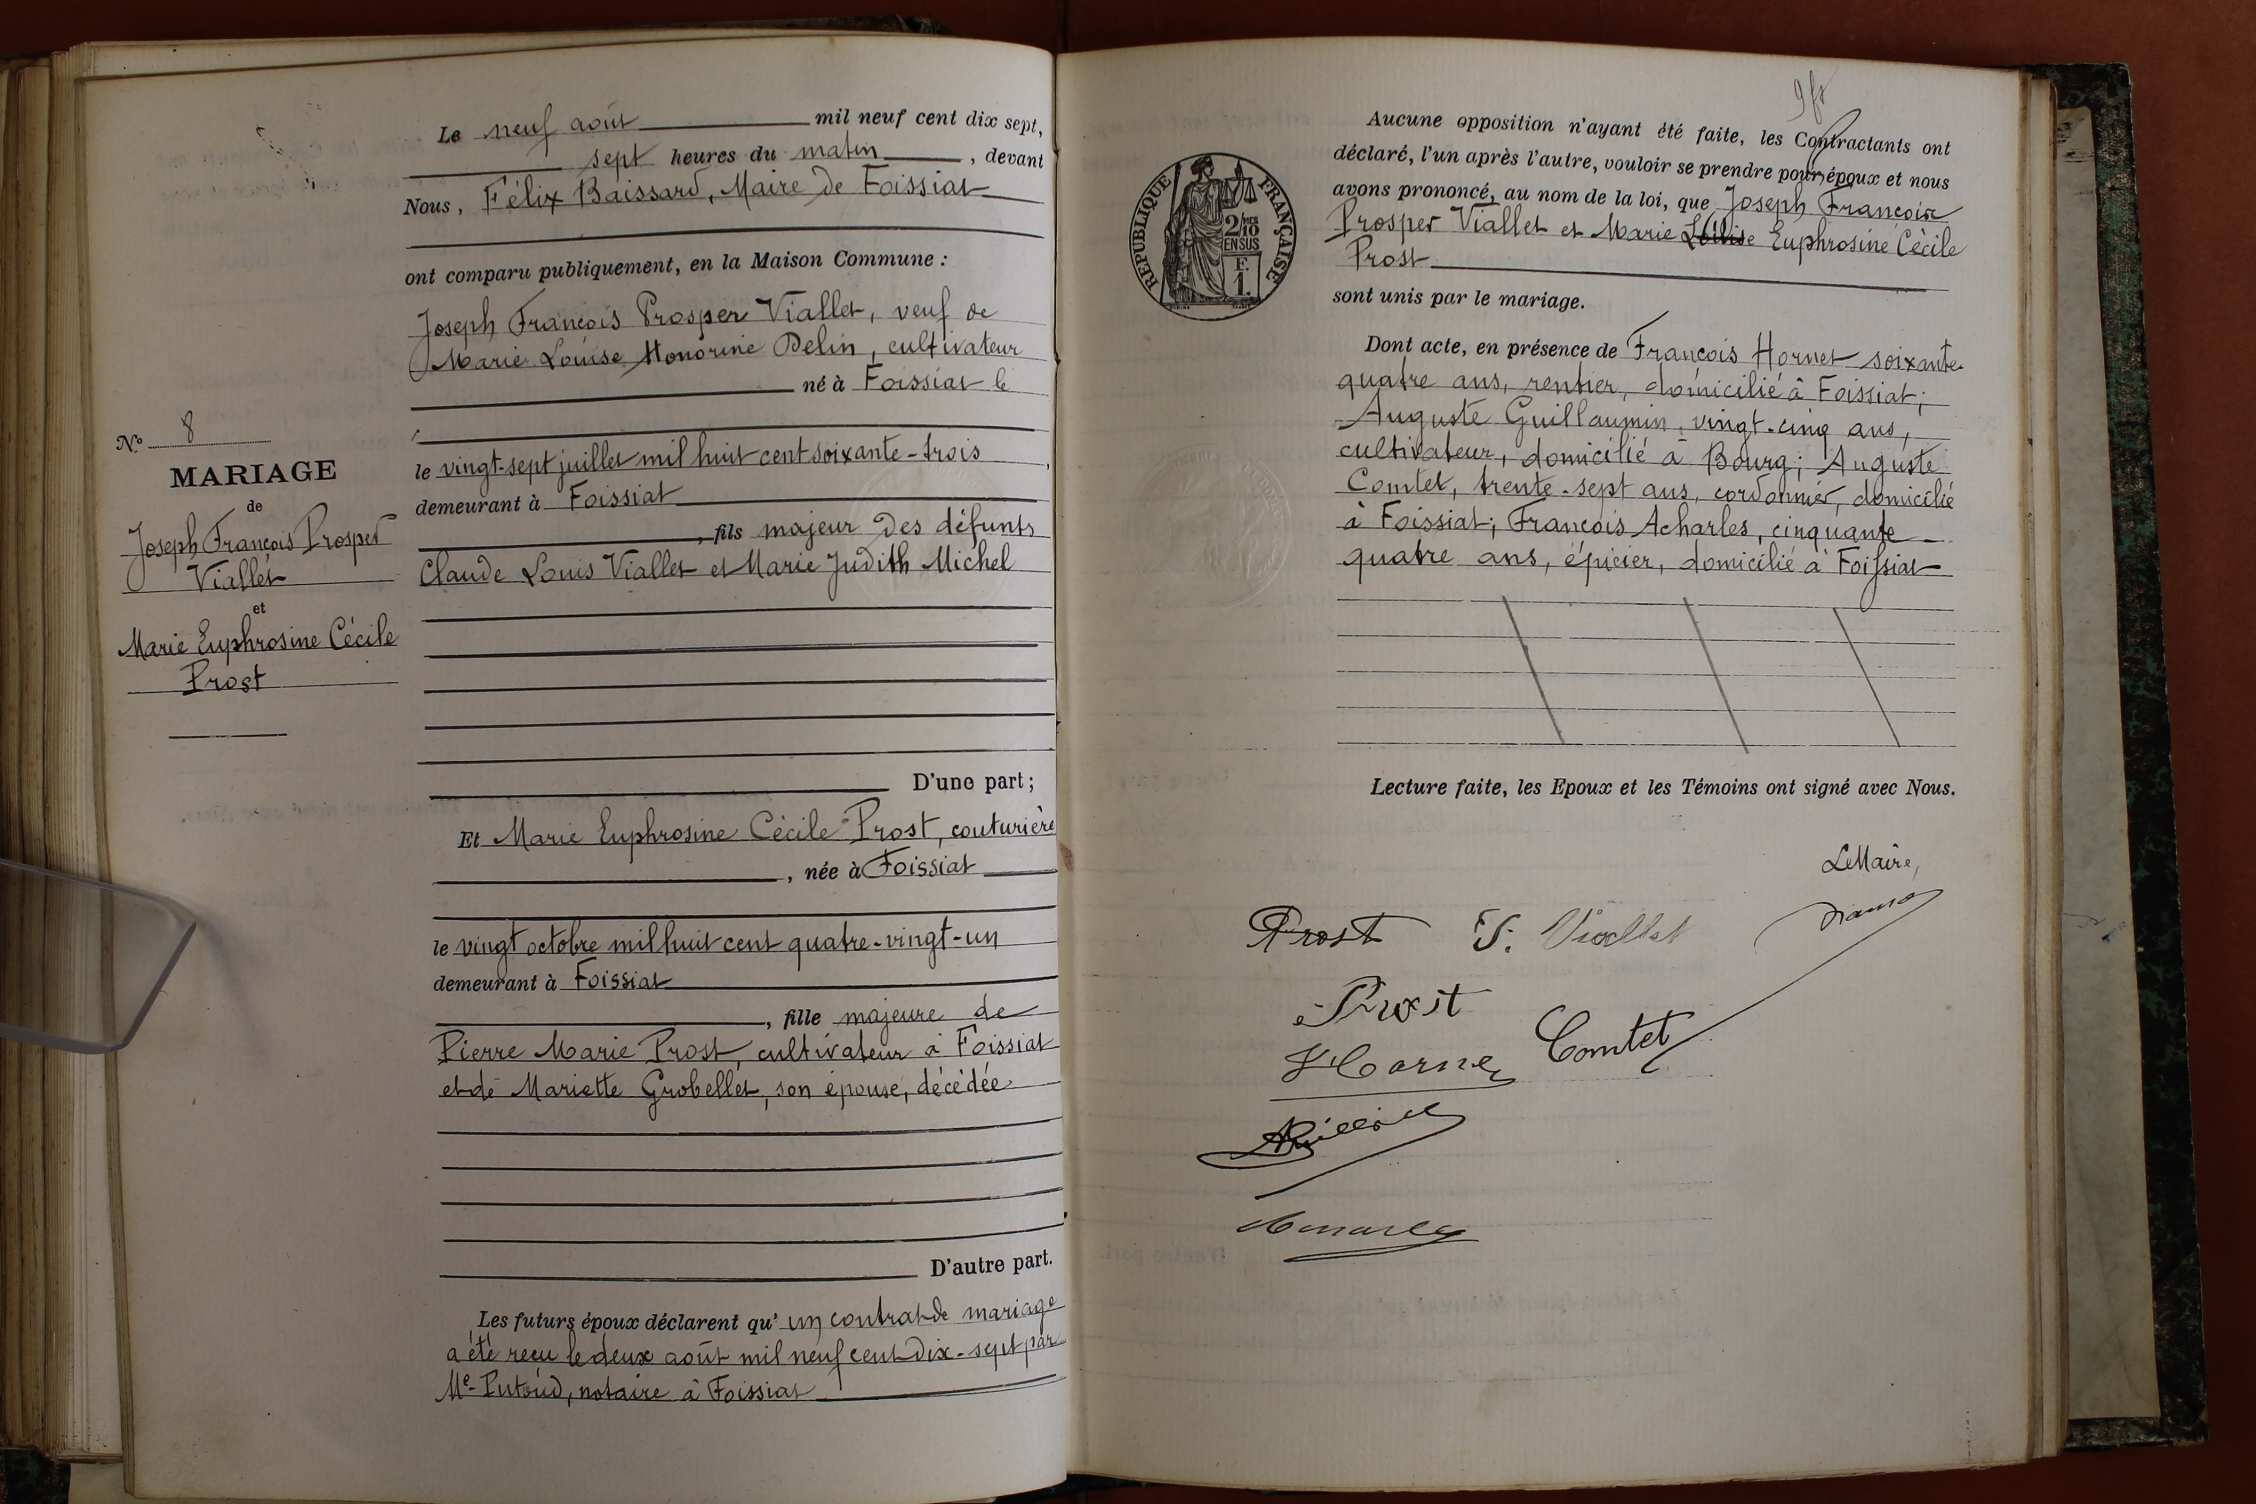 Le neuf août mil neuf cent dix sept,
sept heures du matin, devant
Nous, Félix Baissard, Maire de Foissiat
ont comparu publiquement, en la Maison Commune :
Joseph François Prosper Viallet, veuf de
Marie Louise Honorine Delin, cultivateur
né à Foissiat le
le vingt-sept juillet mil huit cent soixante-trois,
demeurant à Foissiat
, fils majeur des défunts
Claude Louis Viallet et Marie Judith Michel
D'une part ;
Et Marie Euphrosine Cécile Prost, couturière
, née à Foissiat
le vingt octobre mil huit cent quatre-vingt-un
demeurant à Foissiat
, fille majeure de
Pierre Marie Prost, cultivateur à Foissiat
et de Mariette Grobellet, son épouse, décédée
D'autre part.
Les futurs époux déclarent qu'un contrat de mariage
a été reçu le deux août mil neuf cent dix-sept par
Me Putoud, notaire à Foissiat
No 8
MARIAGE
de
Joseph François Prosper
Viallet
et
Marie Euphrosine Cécile
Prost
RÉPUBLIQUE FRANÇAISE
2/10
EN SUS
F.
1.
Aucune opposition n'ayant été faite, les Contractants ont
déclaré, l'un après l'autre, vouloir se prendre pour époux et nous
avons prononcé, au nom de la loi, que Joseph François
Prosper Viallet et Marie Louise Euphrosine Cécile
Prost
sont unis par le mariage.
Dont acte, en présence de François Hornet soixante-
quatre ans, rentier, domicilié à Foissiat ;
Auguste Guillaumin, vingt-cinq ans,
cultivateur, domicilié à Bourg ; Auguste
Comtet, trente-sept ans, cordonnier, domicilié
à Foissiat ; François Acharles, cinquante-
quatre ans, épicier, domicilié à Foissiat
Lecture faite, les Epoux et les Témoins ont signé avec Nous.
Le Maire,
Prost F. Viallet
Prost
Comtet